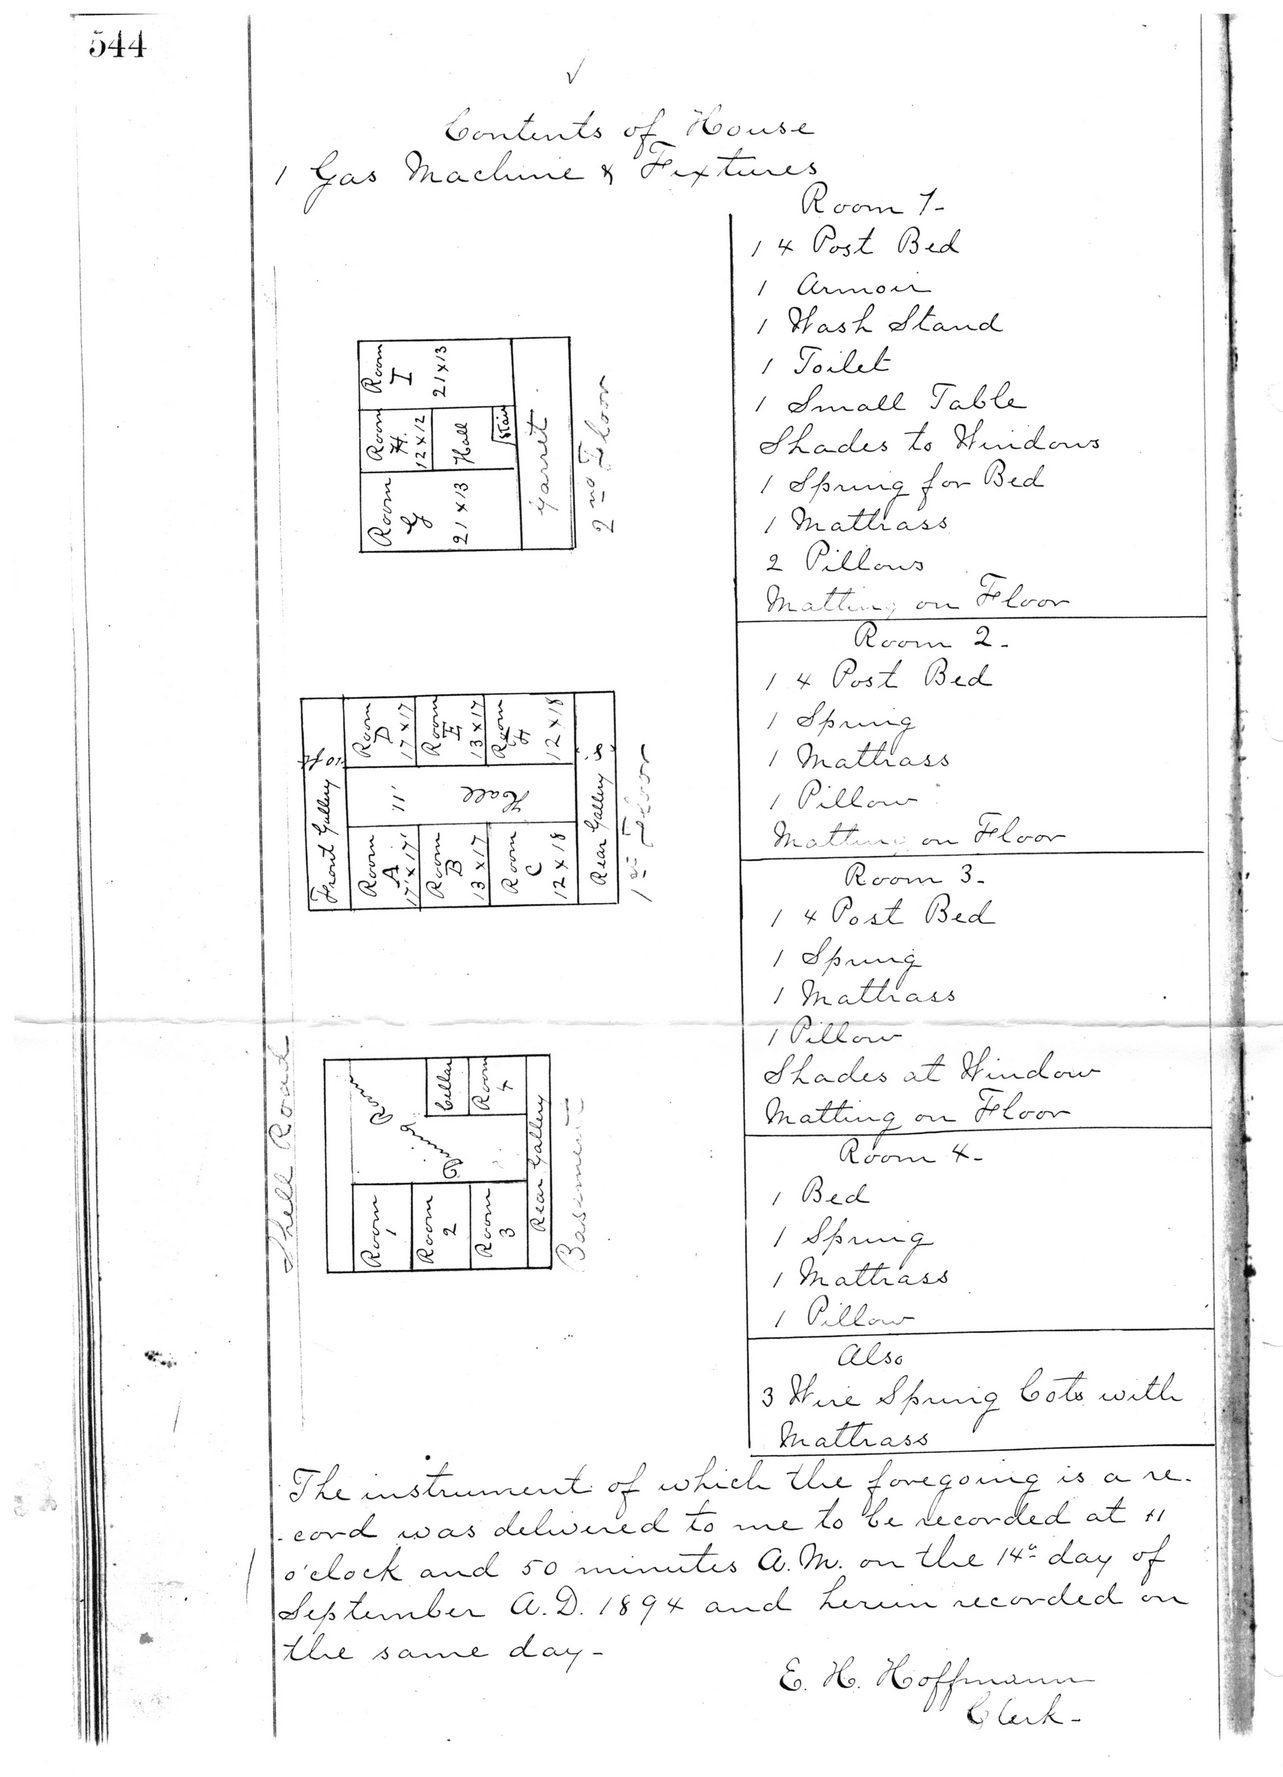 544
Contents of House
1 Gas Machine & Fixtures
Room 1-
1 4 Post Bed
1 Armoir
1 Wash Stand
1 Toilet
1 Small Table
Shades to Windows
1 Spring for Bed
1 Mattrass
2 Pillows
Matting on Floor
Room 2-
1 4 Post Bed
1 Spring
1 Mattrass
1 Pillow
Matting on Floor
Room 3-
1 4 Post Bed
1 Spring
1 Mattrass
1 Pillow
Shades at Window
Matting on Floor
Room 4-
1 Bed
1 Spring
1 Mattrass
1 Pillow
Also
3 Wire Spring Cots with
Mattrass
Room
G
21 x 13
Room
H.
12 x 12
Hall
Stair
Room
I
21 x 13
Garret
2nd Floor
Front Gallery 10 ft
Room
A
17' x 17'
Room
B
13 x 17
Room
C
12 x 18
11'
Hall
Room
D
17 x 17
Room
E
13 x 17
Room
12 x 18
Rear Gallery
1st Floor
Shell Road
Room
1
Room
2
Room
3
Dining Room
Cellar
Room
4
Rear Gallery
Basement
The instrument of which the foregoing is a re-
-cord was delivered to me to be recorded at 11
o'clock and 50 minutes A.M. on the 14th day of
September A.D. 1894 and herein recorded on
the same day-
E. H. Hoffmann
Clerk-